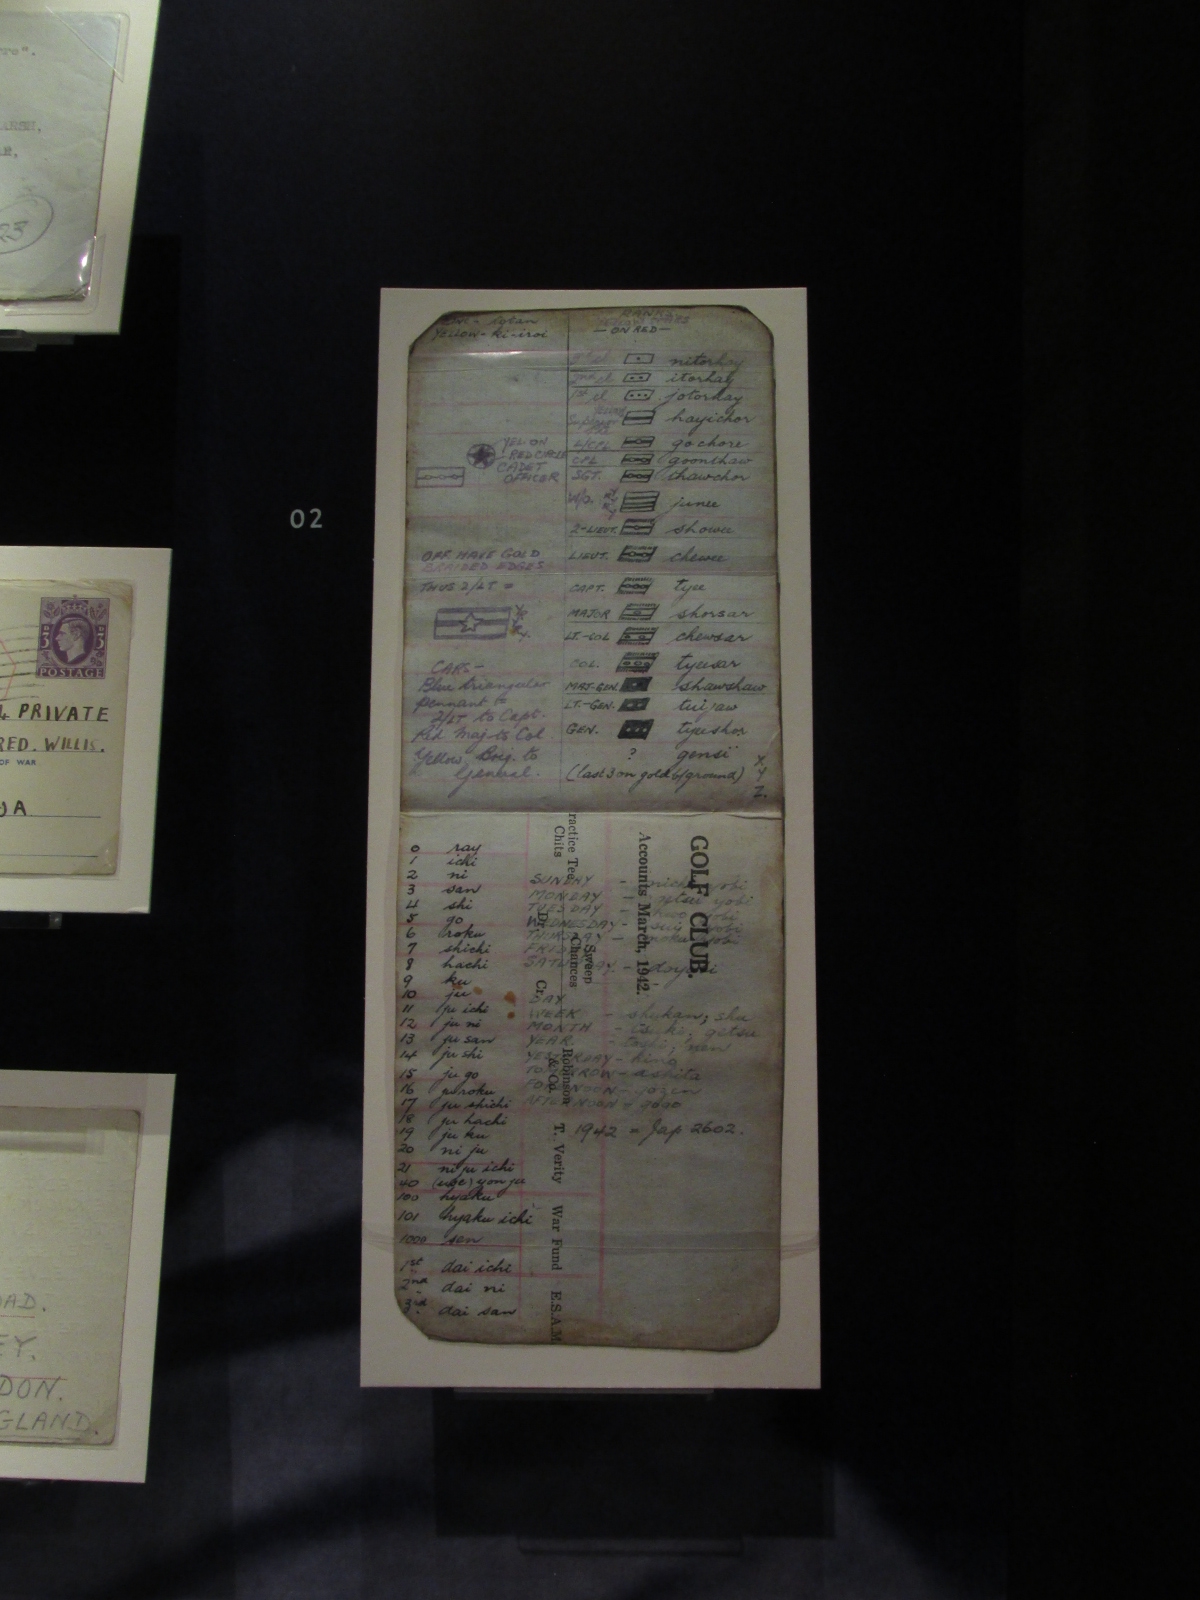 23
3D
3D
POSTAGE
PRIVATE
RED. WILLIS.
OF WAR
DON.
GLAND.
02
YELLOW - ki-iroi
RANK
— ON RED —
nitorhay
2nd cl itorhay
1st cl jotorhay
hayichor
L/CPL gochore
CPL goonshaw
SGT. thawchor
W/O. junee
2-LIEUT. showee
LIEUT. chewee
CAPT. tyee
MAJOR shorsar
LT.-COL chewsar
COL. tyeesar
MAJ-GEN. shawshaw
LT.-GEN. tuijaw
GEN. tyeeshor
? gensi
(last 3 on gold b/ground)
X.
Y
Z.
YEL ON
RED CIRCLE
CADET
OFFICER
OFF. HAVE GOLD
BRAIDED EDGES
THUS 2/LT =
CARS-
Blue triangular
pennant =
2/LT to Capt.
Red Maj to Col
Yellow, Brig. to
General.
0 ray
1 ichi
2 ni
3 san
4 shi
5 go
6 roku
7 shichi
8 hachi
9 ku
10 ju
11 ju ichi
12 ju ni
13 ju san
14 ju shi
15 ju go
16 ju roku
17 ju shichi
18 ju hachi
19 ju ku
20 ni ju
21 ni ju ichi
40 yon ju
100 hyaku
101 hyaku ichi
1000 san
1st dai ichi
2nd dai ni
3rd dai san
SUNDAY - yobi
MONDAY - yobi
TUESDAY -
WEDNESDAY -
THURSDAY -
SATURDAY -
DAY
WEEK - shukan; shu
MONTH - getsu
YEAR - nen
YESTERDAY - kino
TOMORROW - ashita
FORENOON - jozen
AFTERNOON - gogo
1942 = Jap 2602.
GOLF CLUB.
Accounts March, 1942.
Practice Tee
Chits
Dr.
Sweep
Chances
Cr.
Robinson
& Co.
T. Verity
War Fund
E.S.A.M.